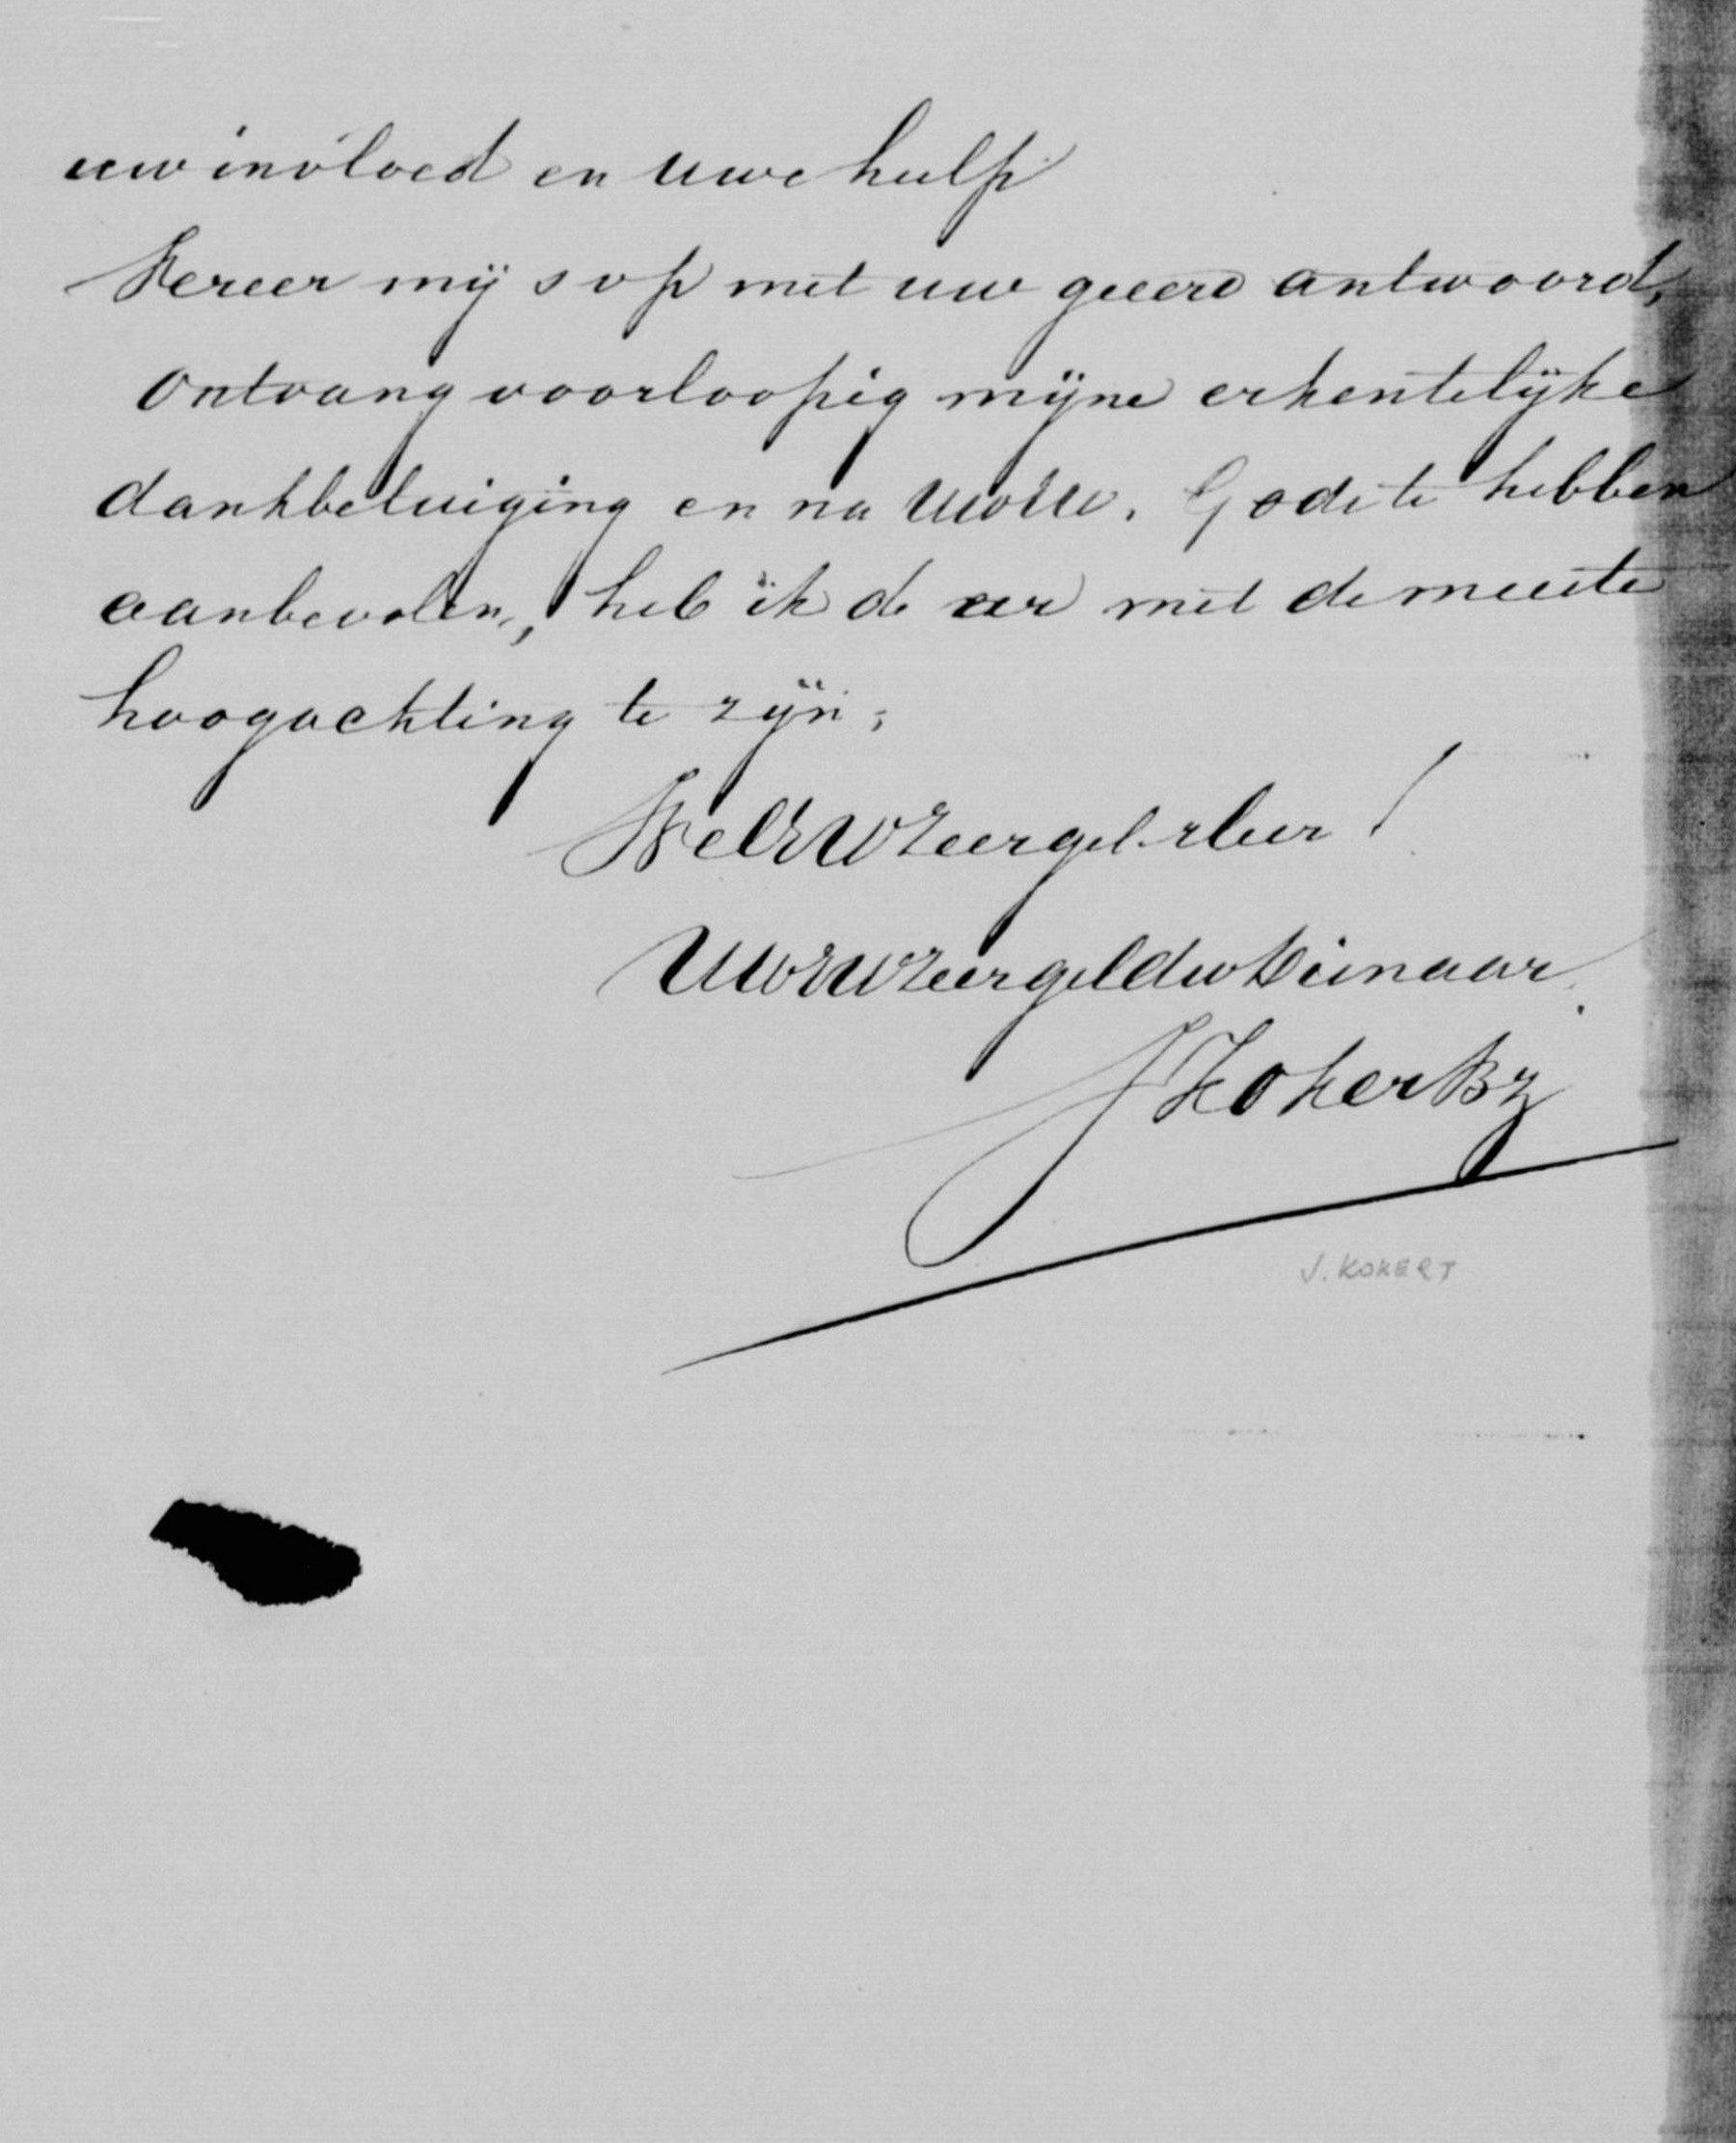 uw invloed en uwe hulp
Vereer mij s v p met uw geeerd antwoord,
Ontvang voorloopig mijne erkentelijke
dankbetuiging en na UwEW. Gode te hebben
aanbevolen, heb ik de eer met de meeste
hoogachting te zijn;
WelEWZeergel. Heer!
UwEWZeergel dw Dienaar.
J Koker Bz
J. KOKERT